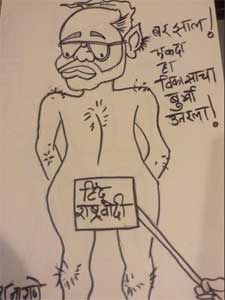 बर झाल!
एकदा
हा
विकासाचा
बुर्खा
उतरला!
हिंदू
राष्ट्रवादी